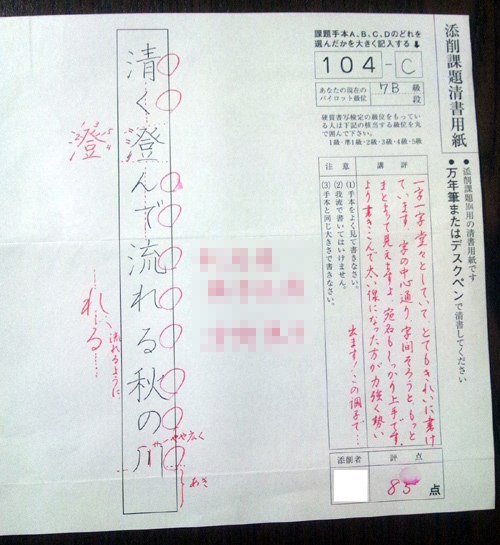 添削課題清書用紙
●添削課題104用の清書用紙です
●万年筆またはデスクペンで清書してください
課題手本A、B、C、Dのどれを
選んだかを大きく記入する
104-C
あなたの現在の
パイロット級位
7B
級
段
硬質書写検定の級位をもってい
る人は下記の該当する級位を丸
で囲んで下さい。
1級・準1級・2級・3級・4級・5級
講評
一字一字堂々としていて、とてもきれいに書け
ています。字の中心通り、字間そろうと、もっと
まとまって見えますよ。宛名もしっかり上手です。
より書きこんで太い線になった方が力強く勢い
出ます!この調子で…
注意
(1)手本をよく見て書きなさい。
(2)我流で書いてはいけません。
(3)手本と同じ大きさで書きなさい。
添削者
評点
85
点
清く澄んで流れる秋の川
やや広く
あき
澄
れる
流れるように